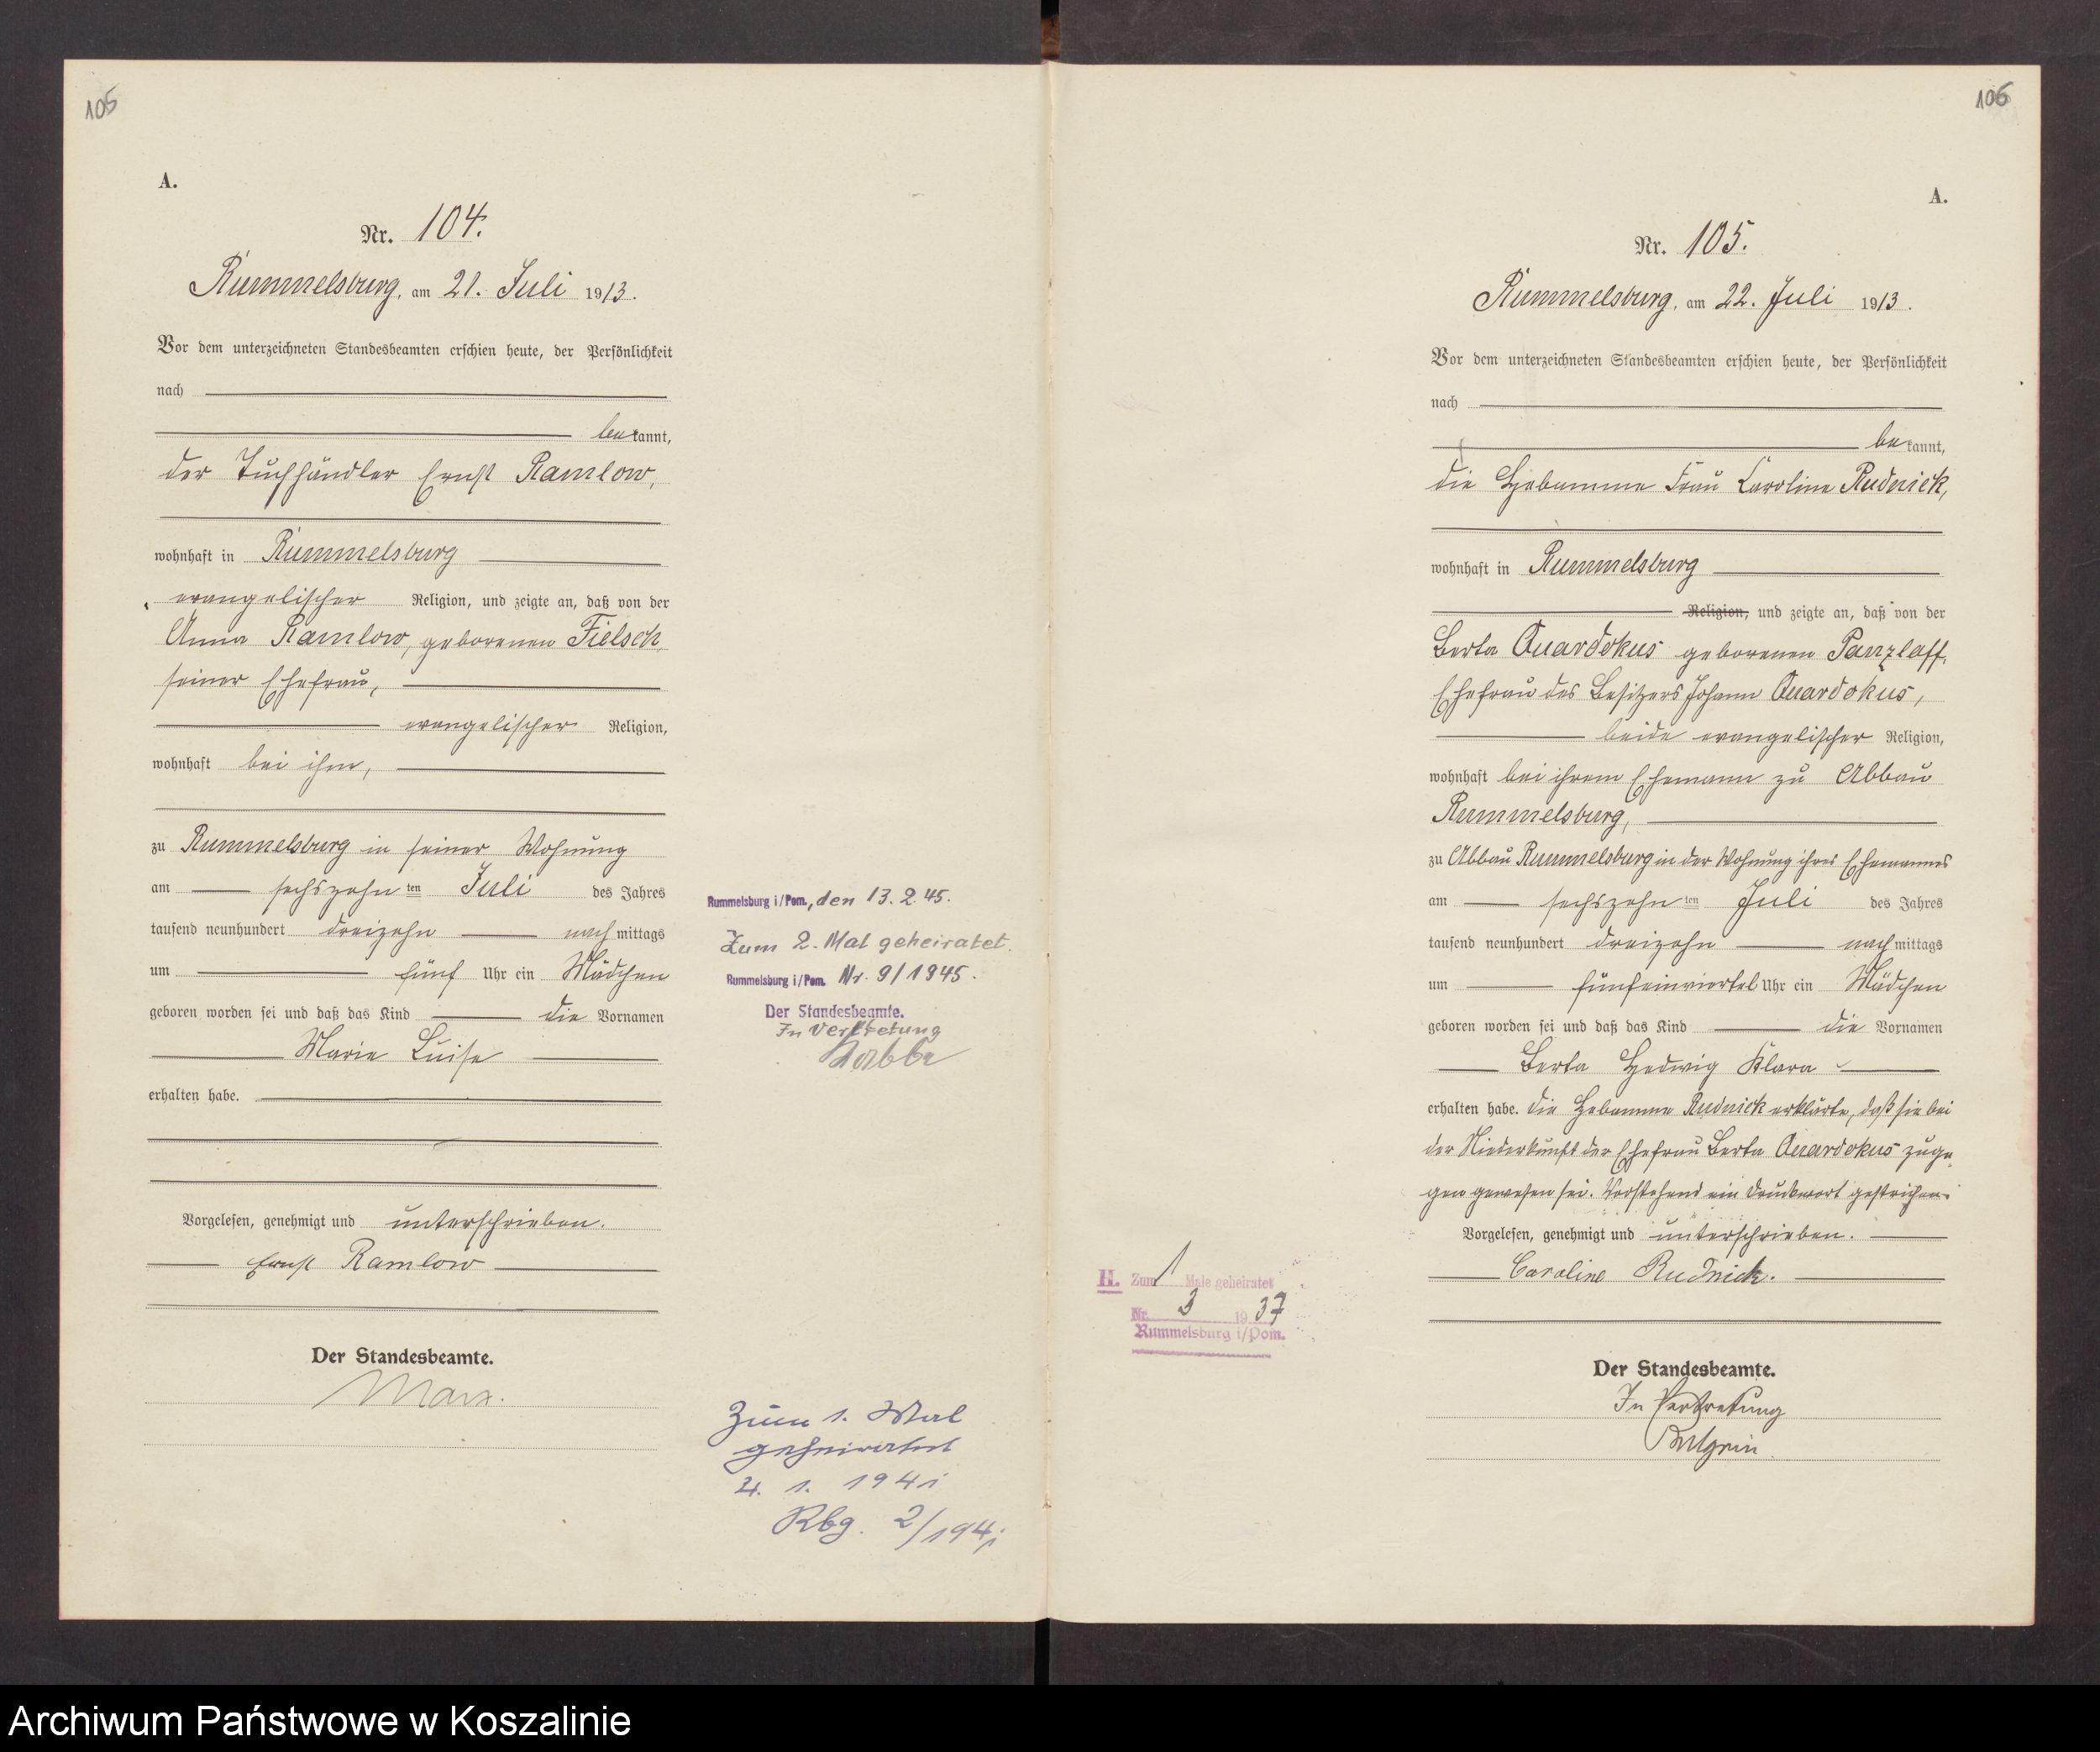 105
A.
Nr. 104.
Rummelsburg, am 21. Juli 1913.
Vor dem unterzeichneten Standesbeamten erschien heute, der Persönlichkeit
nach
bekannt,
der Tuchhändler Ernst Ramlow,
wohnhaft in Rummelsburg
evangelischer Religion, und zeigte an, daß von der
Anna Ramlow, geborenen Fielsch,
seiner Ehefrau,
evangelischer Religion,
wohnhaft bei ihm,
zu Rummelsburg in seiner Wohnung
am sechszehn ten Juli des Jahres
tausend neunhundert dreizehn nachmittags
um fünf Uhr ein Mädchen
geboren worden sei und daß das Kind die Vornamen
Marie Luise
erhalten habe.
Vorgelesen, genehmigt und unterschrieben.
Ernst Ramlow
Der Standesbeamte.
Marx.
Rummelsburg i/Pom., den 13.2.45.
Zum 2. Mal geheiratet.
Rummelsburg i/Pom. Nr. 9/1945.
Der Standesbeamte.
In Vertretung
Zum 1. Mal
geheiratet
4. 1. 1941
Rbg. 2/1941
106
A.
Nr. 105.
Rummelsburg, am 22. Juli 1913.
Vor dem unterzeichneten Standesbeamten erschien heute, der Persönlichkeit
nach
bekannt,
die Hebamme Frau Caroline Rudnick,
wohnhaft in Rummelsburg
Religion, und zeigte an, daß von der
Berta Quardokus geborenen Panzlaff,
Ehefrau des Besitzers Johann Quardokus,
beide evangelischer Religion,
wohnhaft bei ihrem Ehemann zu Abbau
Rummelsburg,
zu Abbau Rummelsburg in der Wohnung ihres Ehemannes
am sechszehn ten Juli des Jahres
tausend neunhundert dreizehn nachmittags
um fünfeinviertel Uhr ein Mädchen
geboren worden sei und daß das Kind die Vornamen
Berta Hedwig Klara
erhalten habe. Die Hebamme Rudnick erklärte, daß sie bei
der Niederkunft der Ehefrau Berta Quardokus zuge-
gen gewesen sei. Vorstehend ein Druckwort gestrichen.
Vorgelesen, genehmigt und unterschrieben.
Caroline Rudnick.
Der Standesbeamte.
In Vertretung
H. Zum 1 Male geheiratet
Nr. 3 1937
Rummelsburg i/Pom.
Archiwum Państwowe w Koszalinie